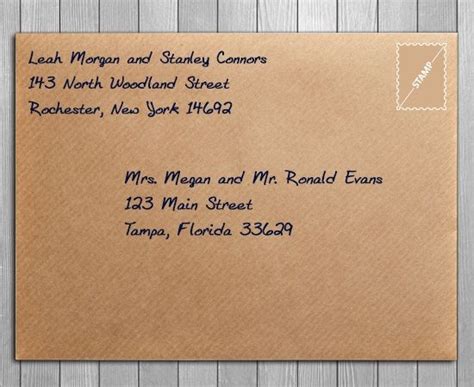 Leah Morgan and Stanley Connors
143 North Woodland Street
Rochester, New York 14692
STAMP
Mrs. Megan and Mr. Ronald Evans
123 Main Street
Tampa, Florida 33629